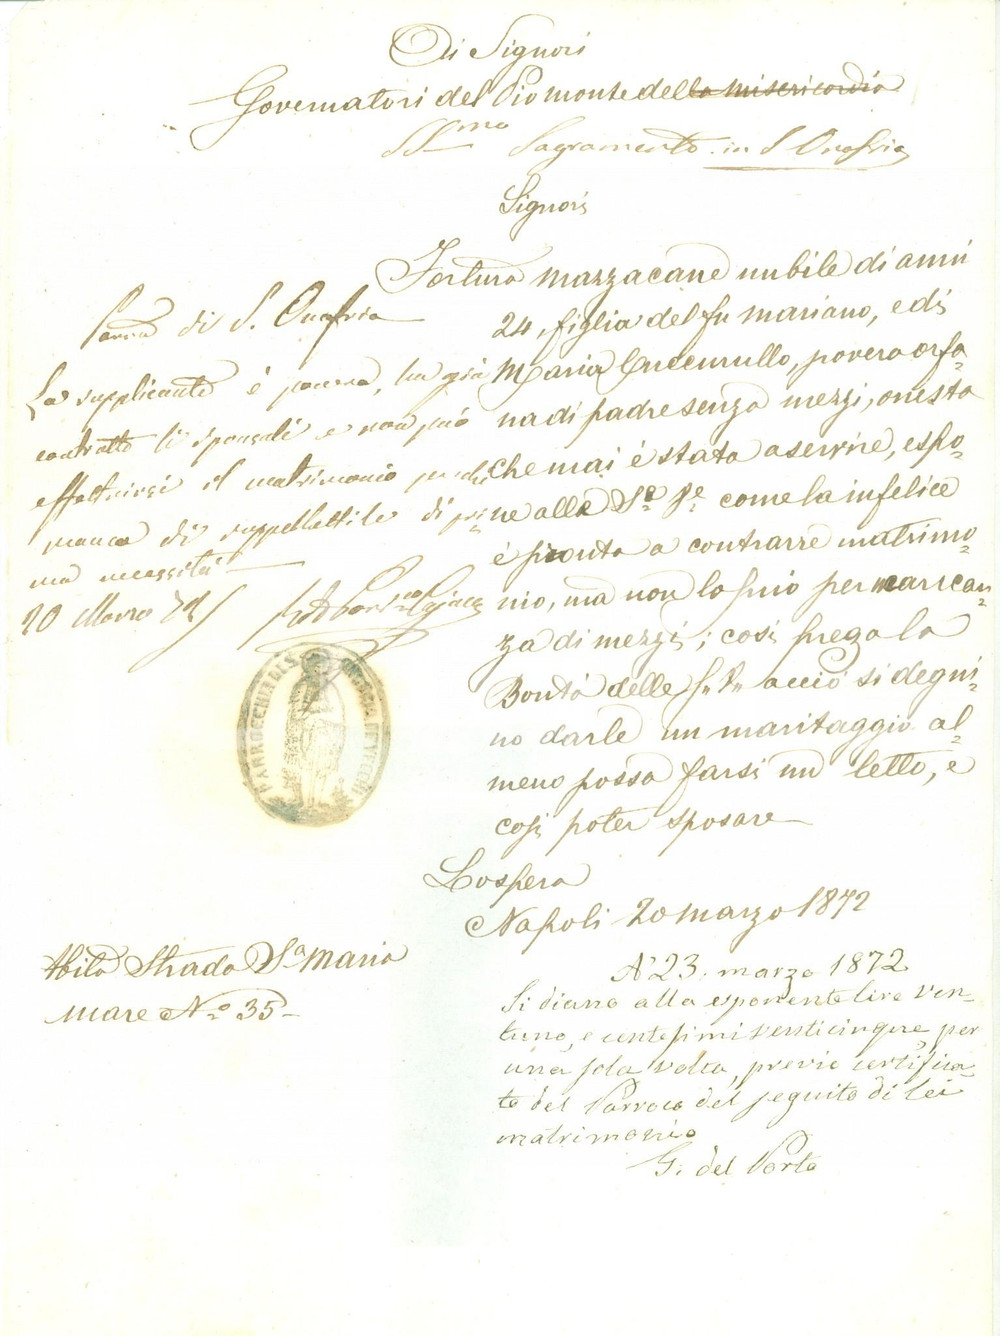 Di Signori
Governatori del Pio monte della misericordia
SS.mo Sagramento in S Onofrio
Signori
Mazzacane nubile di anni
24, figlia del fu mariano, e di
Maria povera orfa-
na di padre senza mezzi, onesta
che mai è stata a servire, espo-
ne alle S.e S.e come la infelice
è pronta a contrarre matrimo-
nio, ma non lo può per mancan-
za di mezzi; così prega la
Bontà delle acciò si degni-
no darle un maritaggio al-
meno possa farsi un letto, e
così poter sposare
Lo spera
Napoli 20 marzo 1872
di S. Onofrio
La supplicante è povera, ha già
contratto li sponsali e non può
effettuirsi il matrimonio perchè
manca di suppellettile di pri-
ma necessità
20 Marzo 72
PARROCCHIA DI S.
Abita Strada S.a Maria
Mare N.o 35
A' 23. marzo 1872
Si diano alla esponente lire ven-
tuno, e centesimi venticinque, per
una sola volta, previo certifica-
to del Parroco del seguito di lei
matrimonio
G. del Porto